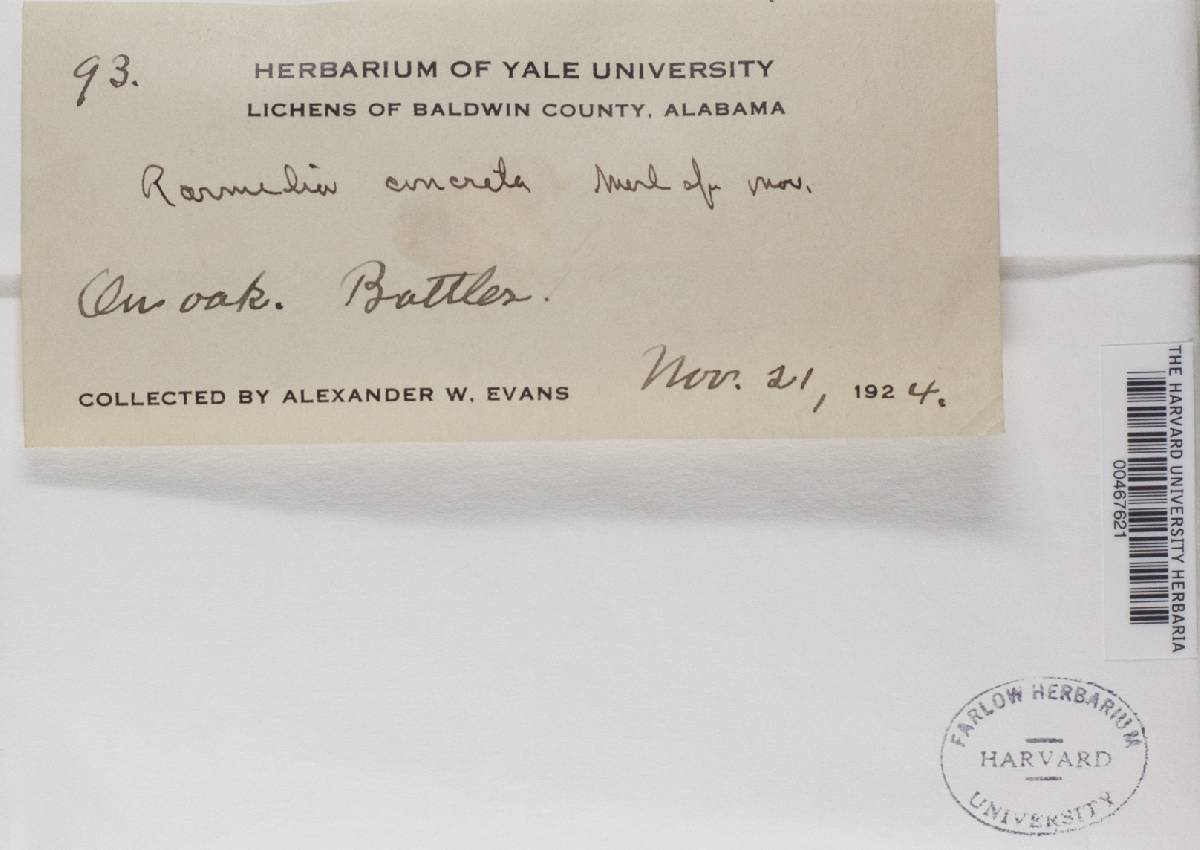 93.
HERBARIUM OF YALE UNIVERSITY
LICHENS OF BALDWIN COUNTY, ALABAMA
Parmelia concreta Merl sp nov.
On oak. Battles.
COLLECTED BY ALEXANDER W. EVANS Nov. 21, 1924.
THE HARVARD UNIVERSITY HERBARIA
00467621
FARLOW HERBARIUM
HARVARD
UNIVERSITY